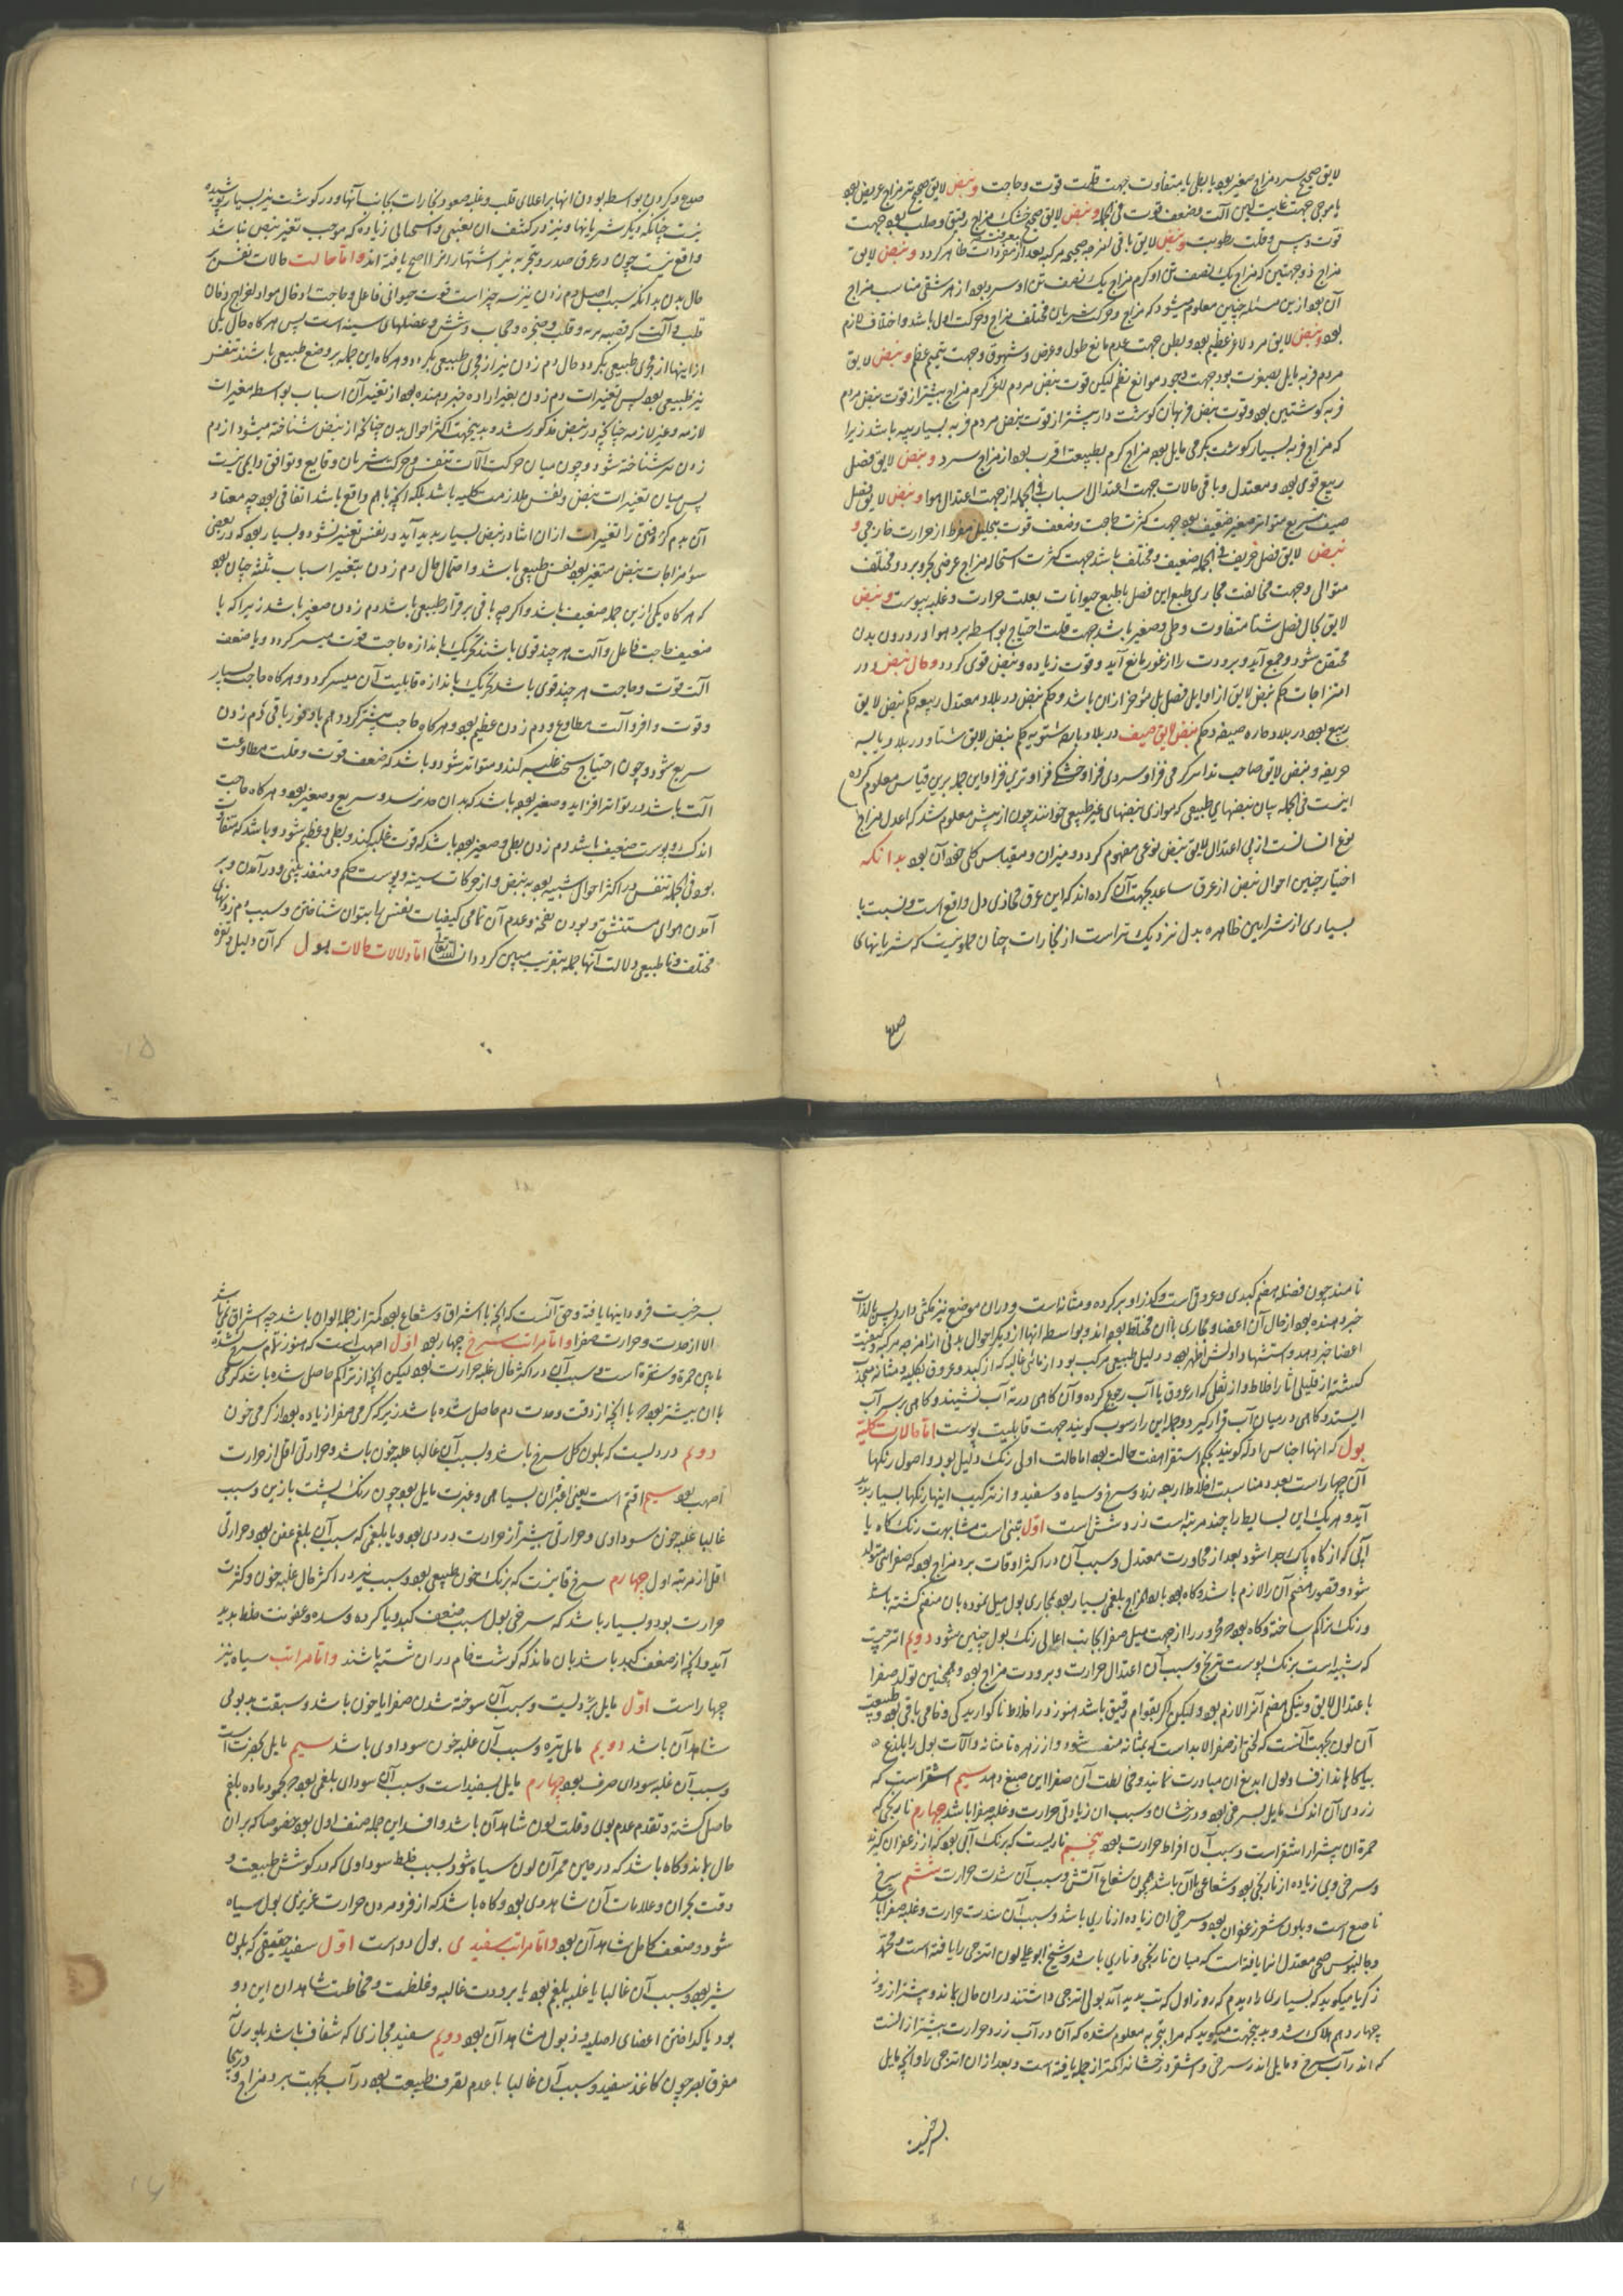 لایق صحیح سرد مزاج صغیر بود یا بطی یا متفاوت جهت قلت قوت و حاجت و نبض لایق صحیح تر مزاج عریض بود
یا موجی جهت غایت لین آلت و ضعف قوت فی الجمله و نبض لایق صحیح خشک مزاج دقیق و صلب بود جهت
قوت و یبس و قلت رطوبت و نبض لایق باقی امزجه صحیحه مرکبه بعد از معرفت مفردات ظاهر کردد و نبض لایق
مزاج ذو جهتین که مزاج یک نصف تن او کرم مزاج یک نصف تن او سرد بود از هر شقی مناسب مزاج
آن بود ازین مسئله چنین معلوم میشود که مزاج و حرکت شریان مختلف مزاج و حرکت اول باشد و اختلاف لازم
بود و نبض لایق مرد لاغر عظیم بود و بطی جهت عدم مانع طول و عرض و شهوق و جهت تتمیم عظم و نبض لایق
مردم فربه مایل بصغرت بود جهت وجود موانع عظم لیکن قوت نبض مردم لاغر کرم مزاج بیشتر از قوت نبض مردم
فربه کوشتین بود و قوت نبض فربهان کوشت دار بیشتر از قوت نبض مردم فربه بسیار پیه باشد زیرا
که مزاج فربه بسیار کوشت بکرمی مایل بود مزاج کرم بطبیعت اقرب بود از مزاج سرد و نبض لایق فصل
ربیع قوی بود و معتدل و باقی حالات جهت اعتدال اسباب فی الجمله از جهت اعتدال هوا و نبض لایق فصل
صیف سریع متواتر صغیر ضعیف بود جهت کثرت حاجت و ضعف قوت بتحلیل مفرط از حرارت خارجی و
نبض لایق فصل خریف فی الجمله ضعیف و مختلف باشد جهت کثرت استحاله مزاج عرضی بحر و برد و مختلف
متوالی و جهت مخالفت مجاری طبع این فصل با طبع حیوانات بعلت حرارت و غلبه یبوست و نبض
لایق کمال فصل شتا متفاوت و بطی و صغیر باشد جهت قلت احتیاج بواسطه برد هوا و در درون بدن
محتقن شود و جمع آید و برودت را از غور مانع آید و قوت زیاده و نبض قوی کردد و حال نبض در
امتزاجات حکم نبض لایق از اوایل فصل یلی مؤخر ازان باشد و حکم نبض در بلاد معتدل ربیعه حکم نبض لایق
ربیع بود در بلاد حاره صیفه و حکم نبض لایق صیف در بلاد بارده شتویه حکم نبض لایق شتا و در بلاد یابسه
خریفه و نبض لایق صاحب تداسر کرمی فزا و سردی فزا و خشکی فزا و تری فزا و این جمله برین قیاس معلوم کرده
اینست فی الجمله بیان نبضهای طبیعی که موازی نبضهای غیر طبیعی خوانند چون از پیش معلوم شد که اعدل مزاج
نوع انسانست از پی اعتدال لایق نبض نوعی مفهوم کردد و میزان و مقیاس کلی خود آن بود بدانکه
اختیار چنین احوال نبض از عرق ساعد بجهت آن کرده اند که این عرق محاذی دل واقع است و نسبت با
بسیاری از شرایین ظاهره بدل نزدیک تر است از بخارات چنان مملو نیست که شریانهای
صدغ
صدغ و کردن بواسطه بودن انها بر اعلای قلب و غلبه صعود بخارات بجانب آنها و در کوشت نیز بسیار پوشیده
نیست چنانکه دیکر شریانها و نیز در کشف ان تعبی و استحالی زیاده که موجب تغیر نبض نباشد
واقع نیست چون در عرق صدر و تجربه نیز اشتهار انرا اصح یافته اند و اما حالت حالات نفس بر
حال بدن بدانکه سبب اصل دم زدن نیز سه چیز است قوت حیوانی فاعل و حاجت ادخال مواد اخراج دخان
قلب و آلت که قصبه ریه و قلب و حنجره و حجاب و شش و عضلهای سینه است پس هرکاه حال یکی
از اینها از مجری طبیعی بکردد حال دم زدن نیز از مجری طبیعی بکردد و هرکاه این جمله بر وضع طبیعی باشند تنفس
نیز طبیعی بود پس تغیرات دم زدن بغیر اراده خبر دهنده بود از تغیر آن اسباب بواسطه مغیرات
لازمه و غیر لازمه چنانچه در نبض مذکور شد و بدینجهت اکثر احوال بدن چنانکه از نبض شناخته میشود از دم
زدن هم شناخته شود و چون میان حرکت آلات تنفس و حرکت شریان وقایع و توافق دایمی نیست
پس میان تغیرات نبض و نفس ملازمت کلیه باشد بلکه انچه باهم واقع باشد اتفاقی بود چه معتاد
آن بدم کزفتی را تغیرات ازان اشاد در نبض بسیار پدید آید در نفس تغیر نشود و بسیار بود که در بعضی
سوء مزاجات نبض متغیر بود نفس طبیعی باشد و احتمال حال دم زدن بتغییر اسباب ثلثه چنان بود
که هرکاه یکی ازین جمله ضعیف باشد و اکرچه باقی بر قرار طبیعی باشد دم زدن صغیر باشد زیرا که با
ضعیف حاجت فاعل و آلت هرچند قوی باشند تحریک باندازه حاجت قوت میسر کردد و با ضعف
آلت قوت و حاجت هرچند قوی باشد تحریک باندازه قابلیت آن میسر کردد و هرکاه حاجت بسیار
و قوت وافر و آلت مطاوع بود دم زدن عظیم بود و هرکاه حاجت بیشتر کردد هم با وفور باقی دم زدن
سریع شود و چون احتیاج سخت غلبه کند و متواتر شود و باشد که ضعف قوت و قلت مطاوعت
آلت باشد در تواتر افزاید و صغیر بود باشد که بدان حد نرسد و سریع و صغیر بود و هرکاه حاجت
اندک و پوست ضعیف باشد دم زدن بطی و صغیر بود باشد که قوت غلبه کند و بطی و عظیم شود و باشد که متفاوت
بود و فی الجمله تنفس در اکثر احوال شبیه بود به نبض و از حرکات سینه و پوست شکم و منفذ بینی و در آمدن و بر
آمدن هوای مستنشق و بودن نفخه و عدم آن تمامی کیفیات نفس را بتوان شناختن و سبب دم زدنهای
مختلف و نا طبیعی و دلالت آنها جمله بتقریب مبین کردد ان شاء الله تعالی اما دلالات حالات بول که آن دلیل و تفسره
نامند چون فضله هضم کبدی و عروقی است و کذر او بر کرده و مثانه است و دران موضع نیز مکثی دارد پس بالذات
خبر دهنده بود از حال آن اعضا و مجاری با ان مختلط بوده اند و بواسطه انها از دیکر احوال بدنی از امزجه مرکبه و کیفیت
اعضا خبر دهد و استشهاد اولش اظهر بود و دلیل طبیعی مرکب بود از مائی غالبه که از کبد و عروق بکلیه و مثانه منجذب
کشته از قلیلی اثار اخلاط و از ثفلی که از عروق با آب رجوع کرده و آن کاهی در ته آب نشیند و کاهی بر سر آب
ایستد و کاهی در میان آب قرار کیرد و جمله این را رسوب کویند جهت قابلیت پوست اما حالات کلیه
بول که انها اجناس ادله کویند بحکم استقرا هفت حالت بود اما حالت اولی رنک دلیل بود و اصول رنکها
آن چهار است بعدد مناسبت اخلاط اربعه زرد و سرخ و سیاه و سفید و از ترکیب اینها رنکها بسیار پدید
آید و هر یک این بسایط را چند مرتبه است زرد شش است اول تبنی است مشابهت رنک کاه یا
آبی که از کاه پاک جدا شود بعد از مجاورت معتدل و سبب آن در اکثر اوقات برد مزاج بود که صفرا نمی تولد
شود و قصور هضم آن را لازم باشد و کاه بود با امزاج بلغمی بسیار بود بمجاری بول میل نموده بان منضم کشته باشد
و رنک تراکم ساخته و کاه بود که محرور را از جهت میل صفرا بجانب اعالی رنک بول چنین شود دویم اترجیت
که شبیه است برنک پوست ترنج و سبب آن اعتدال حرارت و برودت مزاج بود و همچنین تولد صفرا
باعتدال لایق و نیکی هضم آنرا لازم بود و لیکن اکر بقوام رقیق باشد هنوز در اخلاط ناکواریدکی و خامی باقی بود و طبیعت
آن لون بجهت آنست که لختی از صفرا لابد است که بمثانه منصب شود و از زهره تا مثانه و آلات بول را بلذع
بیاکاهاند از فساد بول ابدیع ان مبادرت نمایند و مخالطت آن صفرا این صبغ دهد سیم اشقر است که
زردی آن اندک مایل بسرخی بود و درخشان و سبب ان زیادتی حرارت و غلبه صفرا باشد چهارم نارنجی که
حمرة ان بیشتر از اشقر است و سبب آن افراط حرارت بود پنجم ناریست که برنک آبی بود که از زعفران کیرند
و سرخی وی زیاده از نارنجی بود و شعاعی با آن باشد همچون شعاع آتش و سبب آن شدت حرارت ششم سرخ
ناصع است و بلون شعر زعفران بود و سرخی ان زیاده از ناری باشد و سبب آن شدت حرارت و غلبه صفرا باشد
و جالینوس صحی معتدل انرا یافته است که میان نارنجی و ناری باشد و شیخ ابو علی لون اترجی را یافته است و محمد
زکریا میکوید که بسیاری را دیدم که روز اول که تب پدید آمد بولی اترجی داشتند دران حال بماندند و بیشتر از روز
چهاردهم هلاک شد و بدینجهت میکوید که مرا بتجربه معلوم شده که آن در آب زرد حرارت بیشتر از انست
که اندر آب سرخ و مایل اندر سرخی و اشقر درخشانه را کمتر از جمله یافته است و بعد ازان اترجی را و انچه مایل
بسرخیست
بسرخیست فرود اینها یافته و حق آنست که انچه با اشراق و شعاع بود کمتر از جمله الوان باشد چه اشراق نمی باشد
الا از حدت و حرارت صفرا و اما مراتب سرخ چهار بود اول اصهب است که هنوز تمام سرخ نشده
مابین حمرة و شقرة است و سبب آن در اکثر حال غلبه حرارت بود لیکن انچه از تراکم حاصل شده باشد کرمی
با ان بیشتر بود با انچه از رقت و حدت دم حاصل شده باشد زیرا که کرمی صفرا زیاده بود از کرمی خون
دویم دردیست که بلون کل سرخ باشد و سبب آن غالبا غلبه خون باشد و حرارتی اقل از حرارت
اصهب بود سیم اقتم است یعنی اغبران بسیاهی و غبرت مایل بود چون رنک پشت بازین و سبب
غالبا غلبه خون سوداوی و حرارتی بیشتر از حرارت وردی بود و یا بلغمی که سبب آن بلغم عفن بود و حرارتی
اقل از مرتبه اول چهارم سرخ قانیست که برنک خون طبیعی بود و سبب نیز در اکثر حال غلبه خون و کثرت
حرارت بود و بسیار باشد که سرخی بول سبب ضعف کبد و یا کرده و سده و عفونت خلط پدید
آید و انچه از ضعف کبد باشد بان ماند که کوشت خام دران شسته باشند و اما مراتب سیاه نیز
چهار است اول مایل بزردیست و سبب آن سوخته شدن صفرا یا خون باشد و سبقت بد بوئی
شاهد آن باشد دویم مایل بتیره و سبب آن غلبه خون سوداوی باشد سیم مایل بخضرتست
و سبب آن غلبه سودای صرف بود چهارم مایل بسفیدا است و سبب آن سودای بلغمی بود که بجمود ماده بلغم
حاصل کشته و تقدم عدم بوی و قلت لون شاهد آن باشد و افسد این جمله صنف اول بود خصوصا که بران
حال بماند و کاه باشد که در حین ممر آن لون سیاه شود بسبب خلط سوداوی که در کوشش طبیعت و
دقت بحران و علامات آن شاهد وی بود و کاه باشد که از فرو مردن حرارت غریزی بول سیاه
شود و ضعف کامل شاهد آن بود و اما مراتب سفیدی بول دو است اول سفید حقیقی که بلون
شیر بود و سبب آن غالبا یا غلبه بلغم بود یا برودت غالبه و غلظت و مخاطیت شاهدان این دو
بود یا کداختن اعضای اصلیه و ذبول شاهد آن بود دویم سفید مجازی که شفاف باشد بلوری
مفرق بصر چون کاغذ سفید و سبب آن غالبا یا عدم تصرف طبیعت بود در آب بجهت برد مزاج و